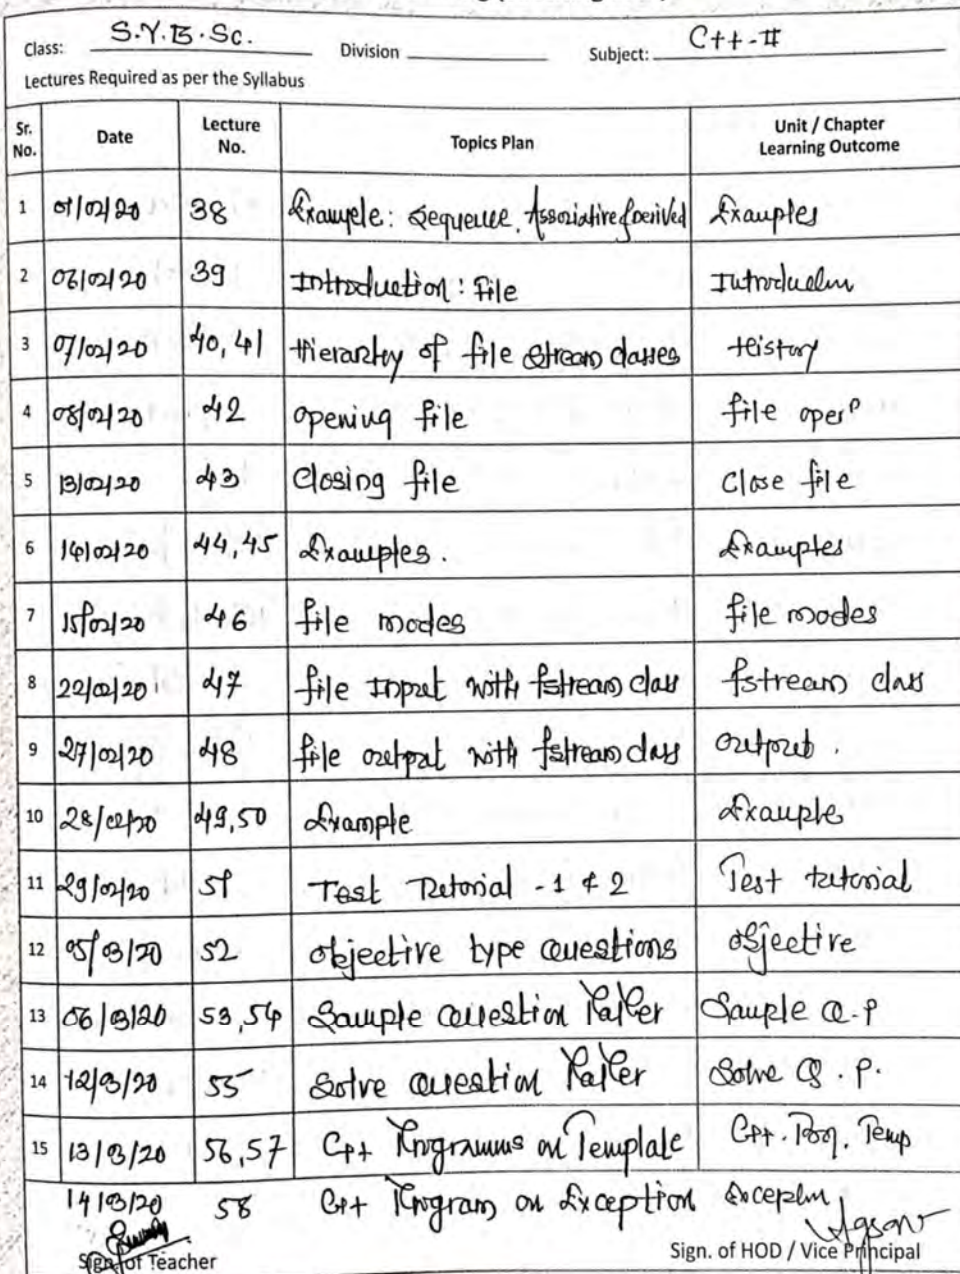 Class: S.Y.B.Sc. Division Subject: C++-II
Lectures Required as per the Syllabus
Sr. No. Date Lecture No. Topics Plan Unit / Chapter Learning Outcome
1 01/02/20 38 Example: Sequence, Associative & Derived Examples
2 06/02/20 39 Introduction: File Introduction
3 07/02/20 40, 41 Hierarchy of file stream classes History
4 08/02/20 42 opening file file open
5 13/02/20 43 Closing file Close file
6 14/02/20 44, 45 Examples. Examples
7 15/02/20 46 file modes file modes
8 22/02/20 47 file Input with fstream class fstream class
9 27/02/20 48 file output with fstream class output.
10 28/02/20 49,50 Example Example
11 29/02/20 51 Test Tutorial - 1 & 2 Test tutorial
12 05/03/20 52 objective type questions objective
13 06/03/20 53, 54 Sample question Paper Sample Q.P
14 12/03/20 55 Solve question Paper Solve Q.P.
15 13/03/20 56,57 C++ Programms on Template C++. Prog. Temp
14/03/20 58 C++ Program on Exception Exception
Sign. of Teacher Sign. of HOD / Vice Principal